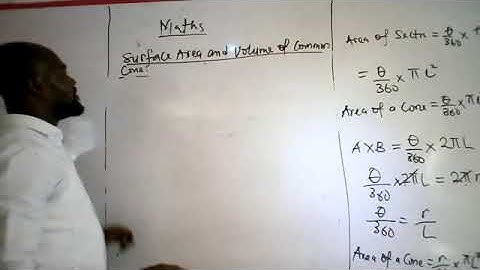 Maths
Surface Area and Volume of Common
Cone
Area of Sectn = θ/360 ×
= θ/360 × πL²
Area of a Cone = θ/360 × π
A×B = θ/360 × 2πL
θ/360 × 2πL = 2π
θ/360 = r/L
Area of a Cone = r/L × πL²